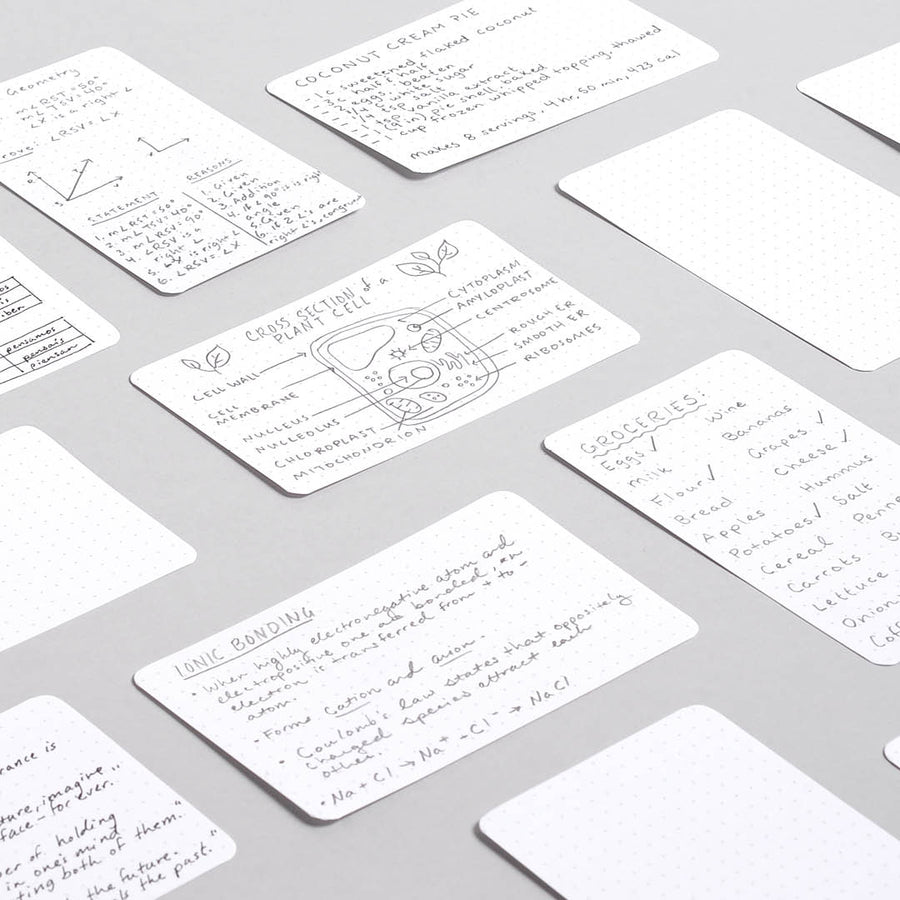 Geometry
m∠RST = 50°
m∠TSV = 40°
∠X is a right ∠
rove: ∠RSV ≅ ∠X
STATEMENT
1. m∠RST = 50°
2. m∠TSV = 40°
3. m∠RSV = 90°
4. ∠RSV is a
right ∠
5. ∠X is right ∠
6. ∠RSV ≅ ∠X
REASONS
1. Given
2. Given
3. Addition
4. if ∠ 90° is right
angle
5. Given
6. if 2 ∠'s are
right ∠'s, congruent
COCONUT CREAM PIE
- 1 c sweetened flaked coconut
- 3 c half & half
- 2 eggs, beaten
- 3/4 white sugar
- 1/4 tsp salt
- 1 tsp vanilla extract
- 1 (9in) pie shell, baked
- 1 cup frozen whipped topping, thawed
makes 8 servings, 4 hr, 50 min, 423 cal
os
is
.ben
pensamos
pensáis
piensan
CROSS SECTION of a
PLANT CELL
CELL WALL
CELL
MEMBRANE
NUCLEUS
NUCLEOLUS
CHLOROPLAST
MITOCHONDRION
CYTOPLASM
AMYLOPLAST
CENTROSOME
ROUGH ER
SMOOTH ER
RIBOSOMES
GROCERIES:
Eggs ✓ Wine
Milk Bananas
Flour ✓ Grapes ✓
Bread Cheese ✓
Apples Hummus
Potatoes ✓ Salt
Cereal Penne
Carrots
Lettuce
Onion
Coff
IONIC BONDING
• When highly electronegative atom and
electropositive one are bonded, an
electron is transferred from + to -
atom.
• Forms cation and anion.
• Coulomb's law states that oppositely
charged species attract each
other.
• Na + Cl → Na⁺ - Cl⁻ → NaCl
rance is
ture, imagine
face - for ever."
er of holding
in one's mind
ting both of them."
the future.
ls the past."